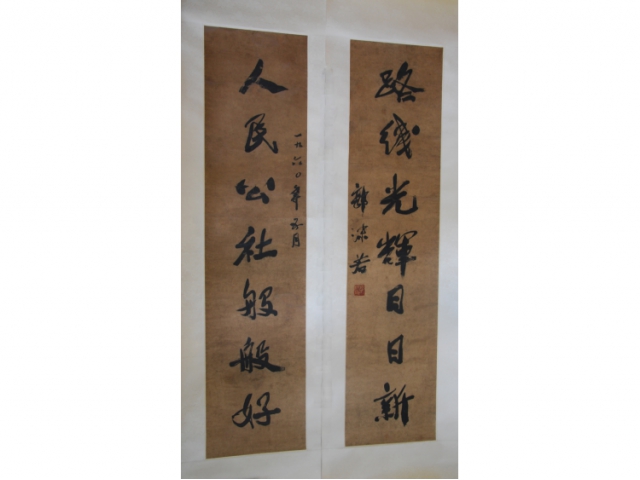 路线光輝日日新
郭沫若
一九六〇年
人民公社般般好